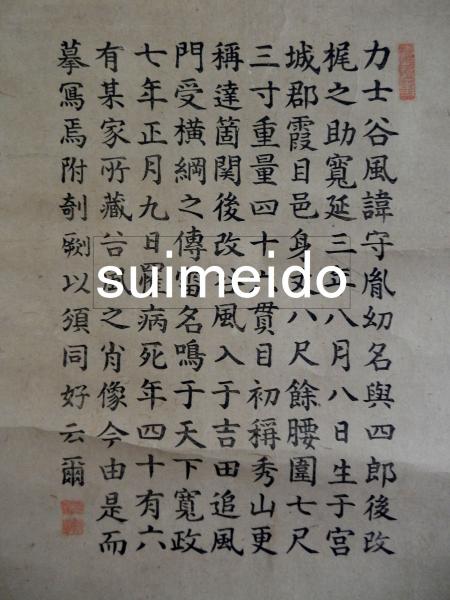 力士谷風諱守胤幼名與四郎後改
梶之助寬延三年八月八日生于宮
城郡霞目邑身丈八尺餘腰圍七尺
三寸重量四十貫目初稱秀山更
稱達箇関後改谷風入于吉田追風
門受橫綱之傳雷名鳴于天下寬政
七年正月九日罹病死年四十有六
有某家所藏谷風之肖像今由是而
摹寫焉附剞劂以須同好云爾
suimeido